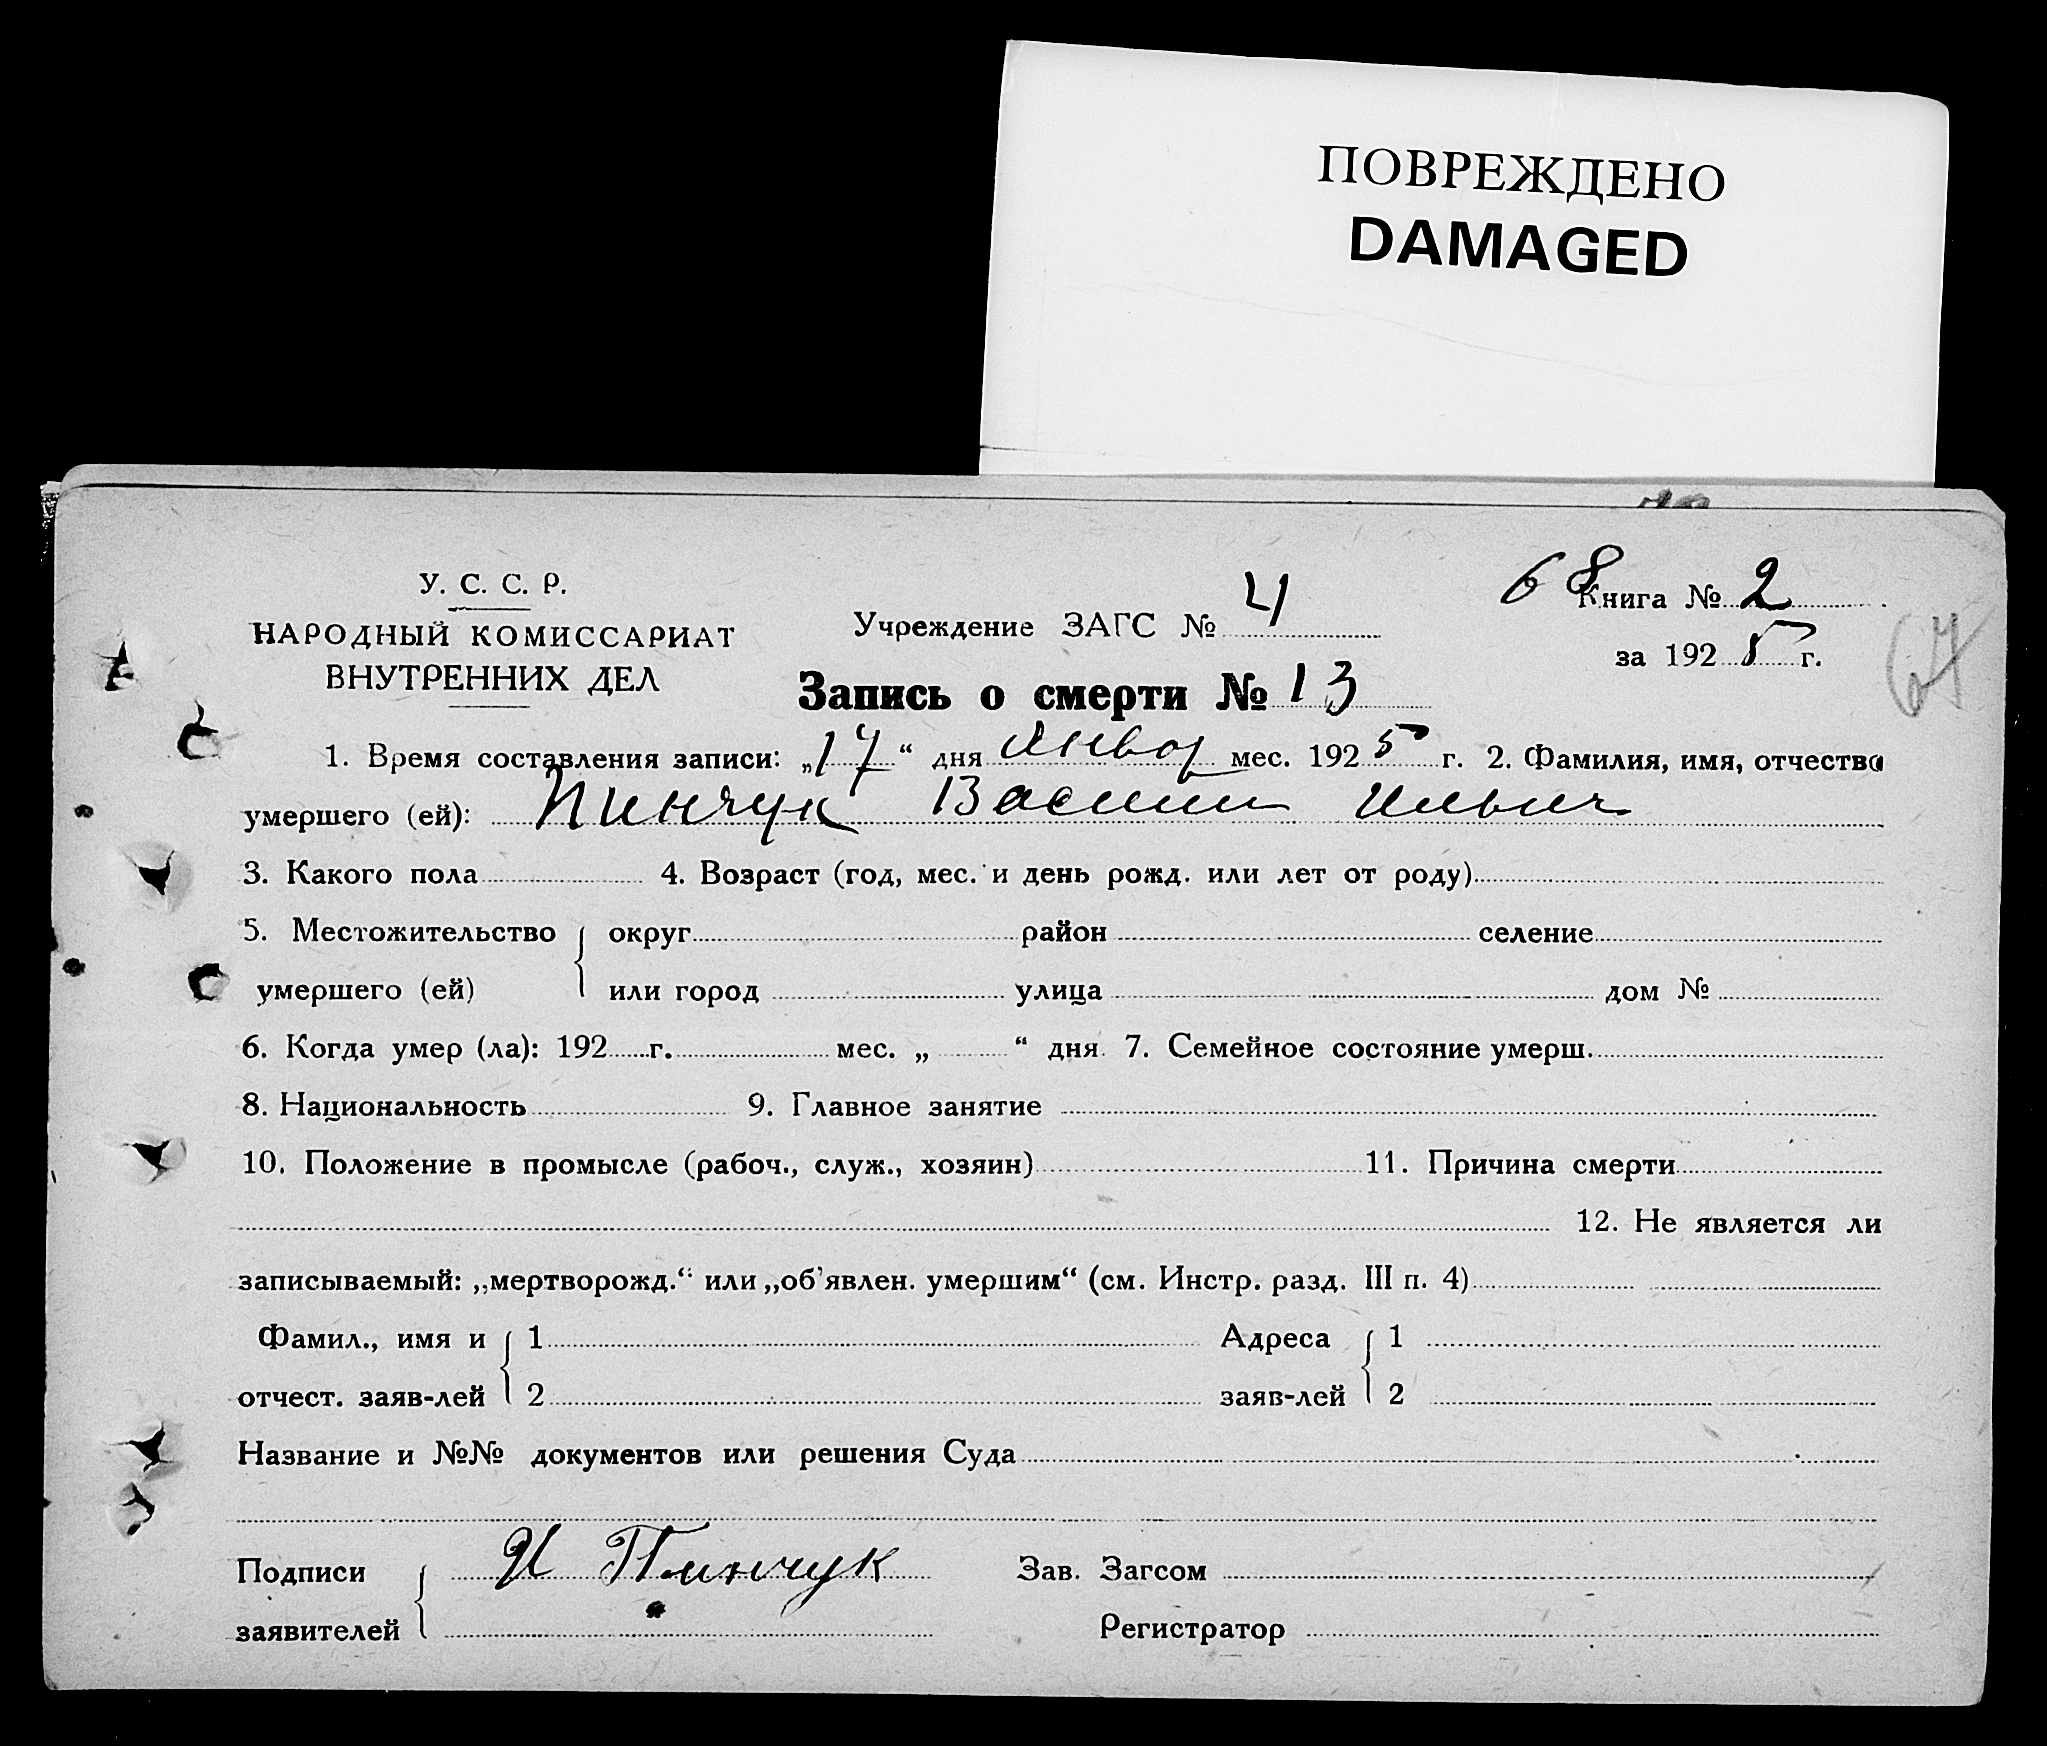 ПОВРЕЖДЕНО
DAMAGED
У. С. С. Р.
НАРОДНЫЙ КОМИССАРИАТ
ВНУТРЕННИХ ДЕЛ
Учреждение ЗАГС № 4
68
Книга № 2
за 1925 г.
64
Запись о смерти № 13
1. Время составления записи: „17“ дня Январ мес. 1925 г. 2. Фамилия, имя, отчество
умершего (ей): Пинчук Васили Ильич
3. Какого пола 4. Возраст (год, мес. и день рожд. или лет от роду)
5. Местожительство округ район селение
умершего (ей) или город улица дом №
6. Когда умер (ла): 192 г. мес. „ “ дня 7. Семейное состояние умерш.
8. Национальность 9. Главное занятие
10. Положение в промысле (рабоч., служ., хозяин) 11. Причина смерти
12. Не является ли
записываемый: „мертворожд.“ или „об'явлен. умершим“ (см. Инстр. разд. III п. 4)
Фамил., имя и 1 Адреса 1
отчест. заяв-лей 2 заяв-лей 2
Название и №№ документов или решения Суда
Подписи И Пинчук Зав. Загсом
заявителей Регистратор